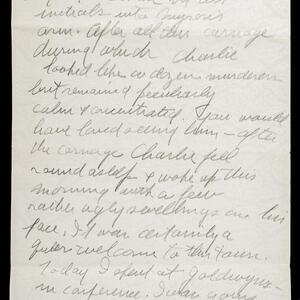 initials into Negroe's
arm. After all this carnage
during which Charlie
looked like a dozen murderers
but remained peculiarly
calm & concentrated. You would
have loved seeing him – after
the carnage Charlie fell
round & woke up this
morning with a few
rather ugly swellings on his
face. It was certainly a
queer welcome to this town.
Today I spent at Goldwyn's –
in conference. I was